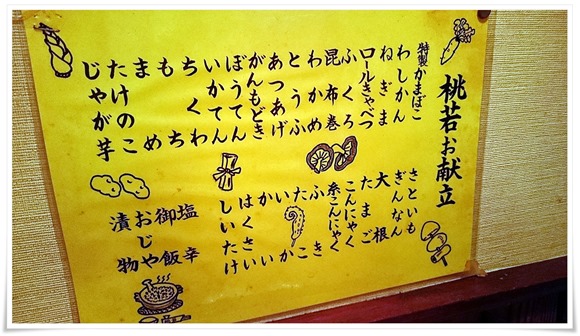 桃若お献立
特製かまぼこ
わしかん
ねぎま
ロールきゃべつ
ふくろ
昆布巻
わかめ
とうふ
あつあげ
がんもどき
ぼうてん
いかてん
ちくわ
もち
まめ
たけのこ
じゃが芋
さといも
ぎんなん
大根
たまご
こんにゃく
糸こんにゃく
ふき
たこ
いか
かい
はくさい
しいたけ
塩辛
御飯
おじや
漬物